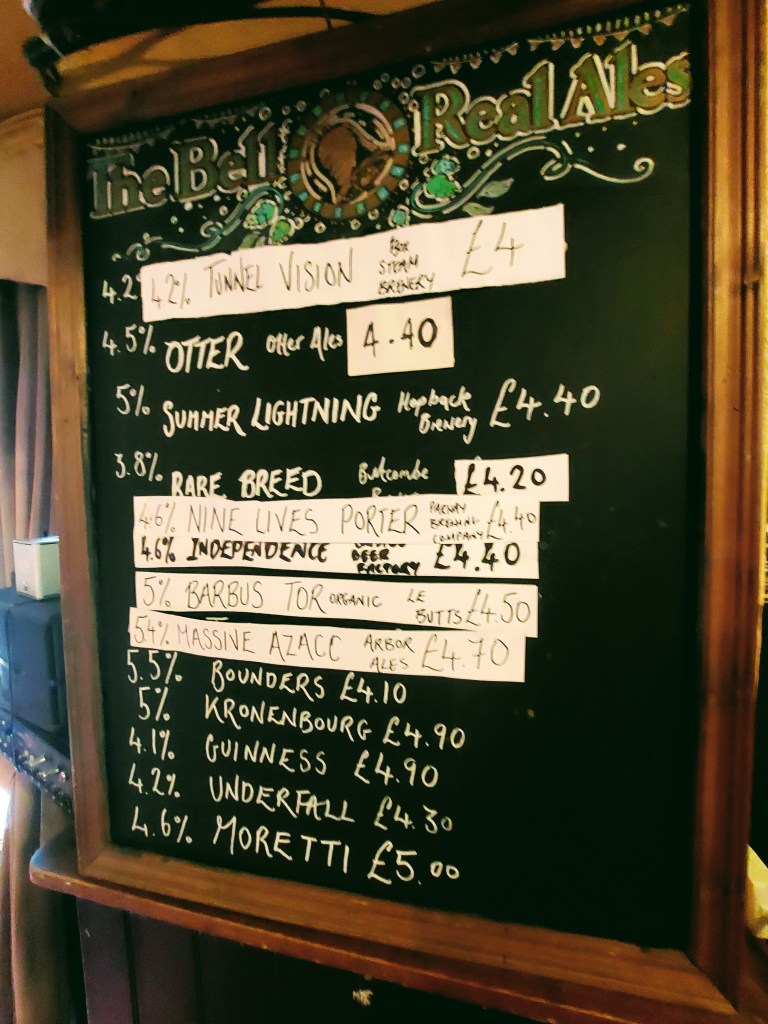 The Bell Real Ales
4.2% 4.2% TUNNEL VISION BOX STEAM BREWERY £4
4.5% OTTER Otter Ales 4.40
5% SUMMER LIGHTNING Hopback Brewery £4.40
3.8% RARE BREED Butcombe £4.20
4.6% NINE LIVES PORTER BREWING COMPANY £4.40
4.6% INDEPENDENCE BEER FACTORY £4.40
5% BARBUS TOR ORGANIC LE BUTTS £4.50
5.4% MASSIVE AZACC ARBOR ALES £4.70
5.5% BOUNDERS £4.10
5% KRONENBOURG £4.90
4.1% GUINNESS £4.90
4.2% UNDERFALL £4.30
4.6% MORETTI £5.00